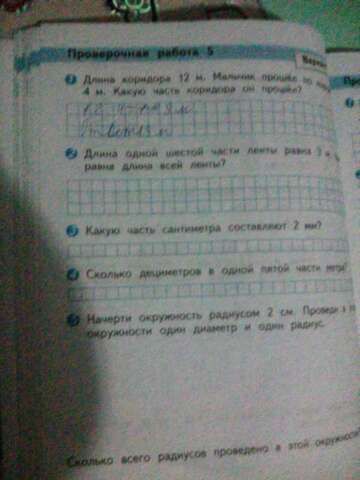 Проверочная работа 5
Вариант
1 Длина коридора 12 м. Мальчик прошёл по
4 м. Какую часть коридора он прошёл?
2 Длина одной шестой части ленты равна 3
равна длина всей ленты?
3 Какую часть сантиметра составляют 2 мм?
4 Сколько дециметров в одной пятой части метра?
5 Начерти окружность радиусом 2 см. Проведи в
окружности один диаметр и один радиус.
Сколько всего радиусов проведено в этой окружности?